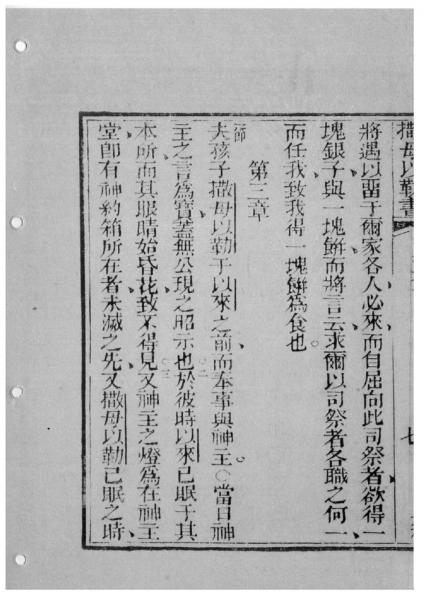 撒母以勒書
將遇以畱于爾家各人必來而自屈向此司祭者欲得一
塊銀子與一塊餅而將言云求爾以司祭者各職之何一
而任我致我得一塊餅爲食也
第三章
一節
夫孩子撒母以勒于以來之前而奉事與神主○當日神
主之言爲寶蓋無公現之昭示也○二於彼時以來已眠于其
本所而其眼睛始昏花致不得見○三又神主之燈爲在神主
堂卽有神約箱所在者未滅之先又撒母以勒已眠之時